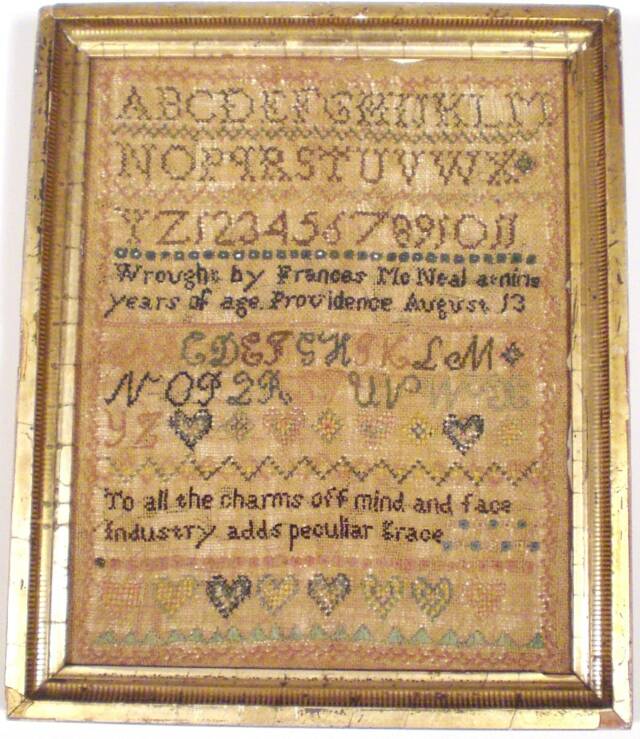 ABCDEFGHIJKLM
NOPQRSTUVWX
YZ1234567891011
Wrought by Frances Mc Neal at nine
years of age. Providence August 13
CDEFGHIKLM
NOPQR UVWX
YZ
To all the charms off mind and face
Industry adds peculiar Grace